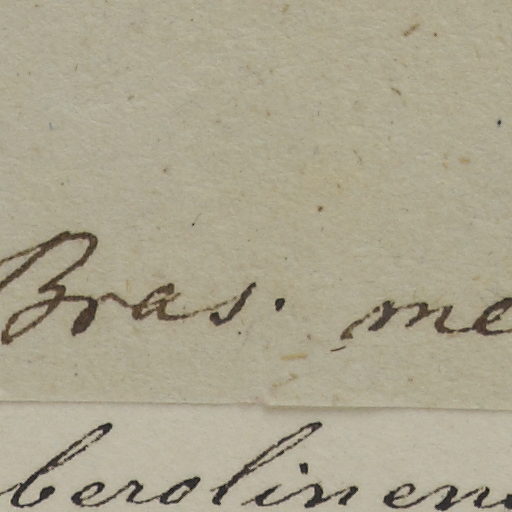 Bras. me
berolinen